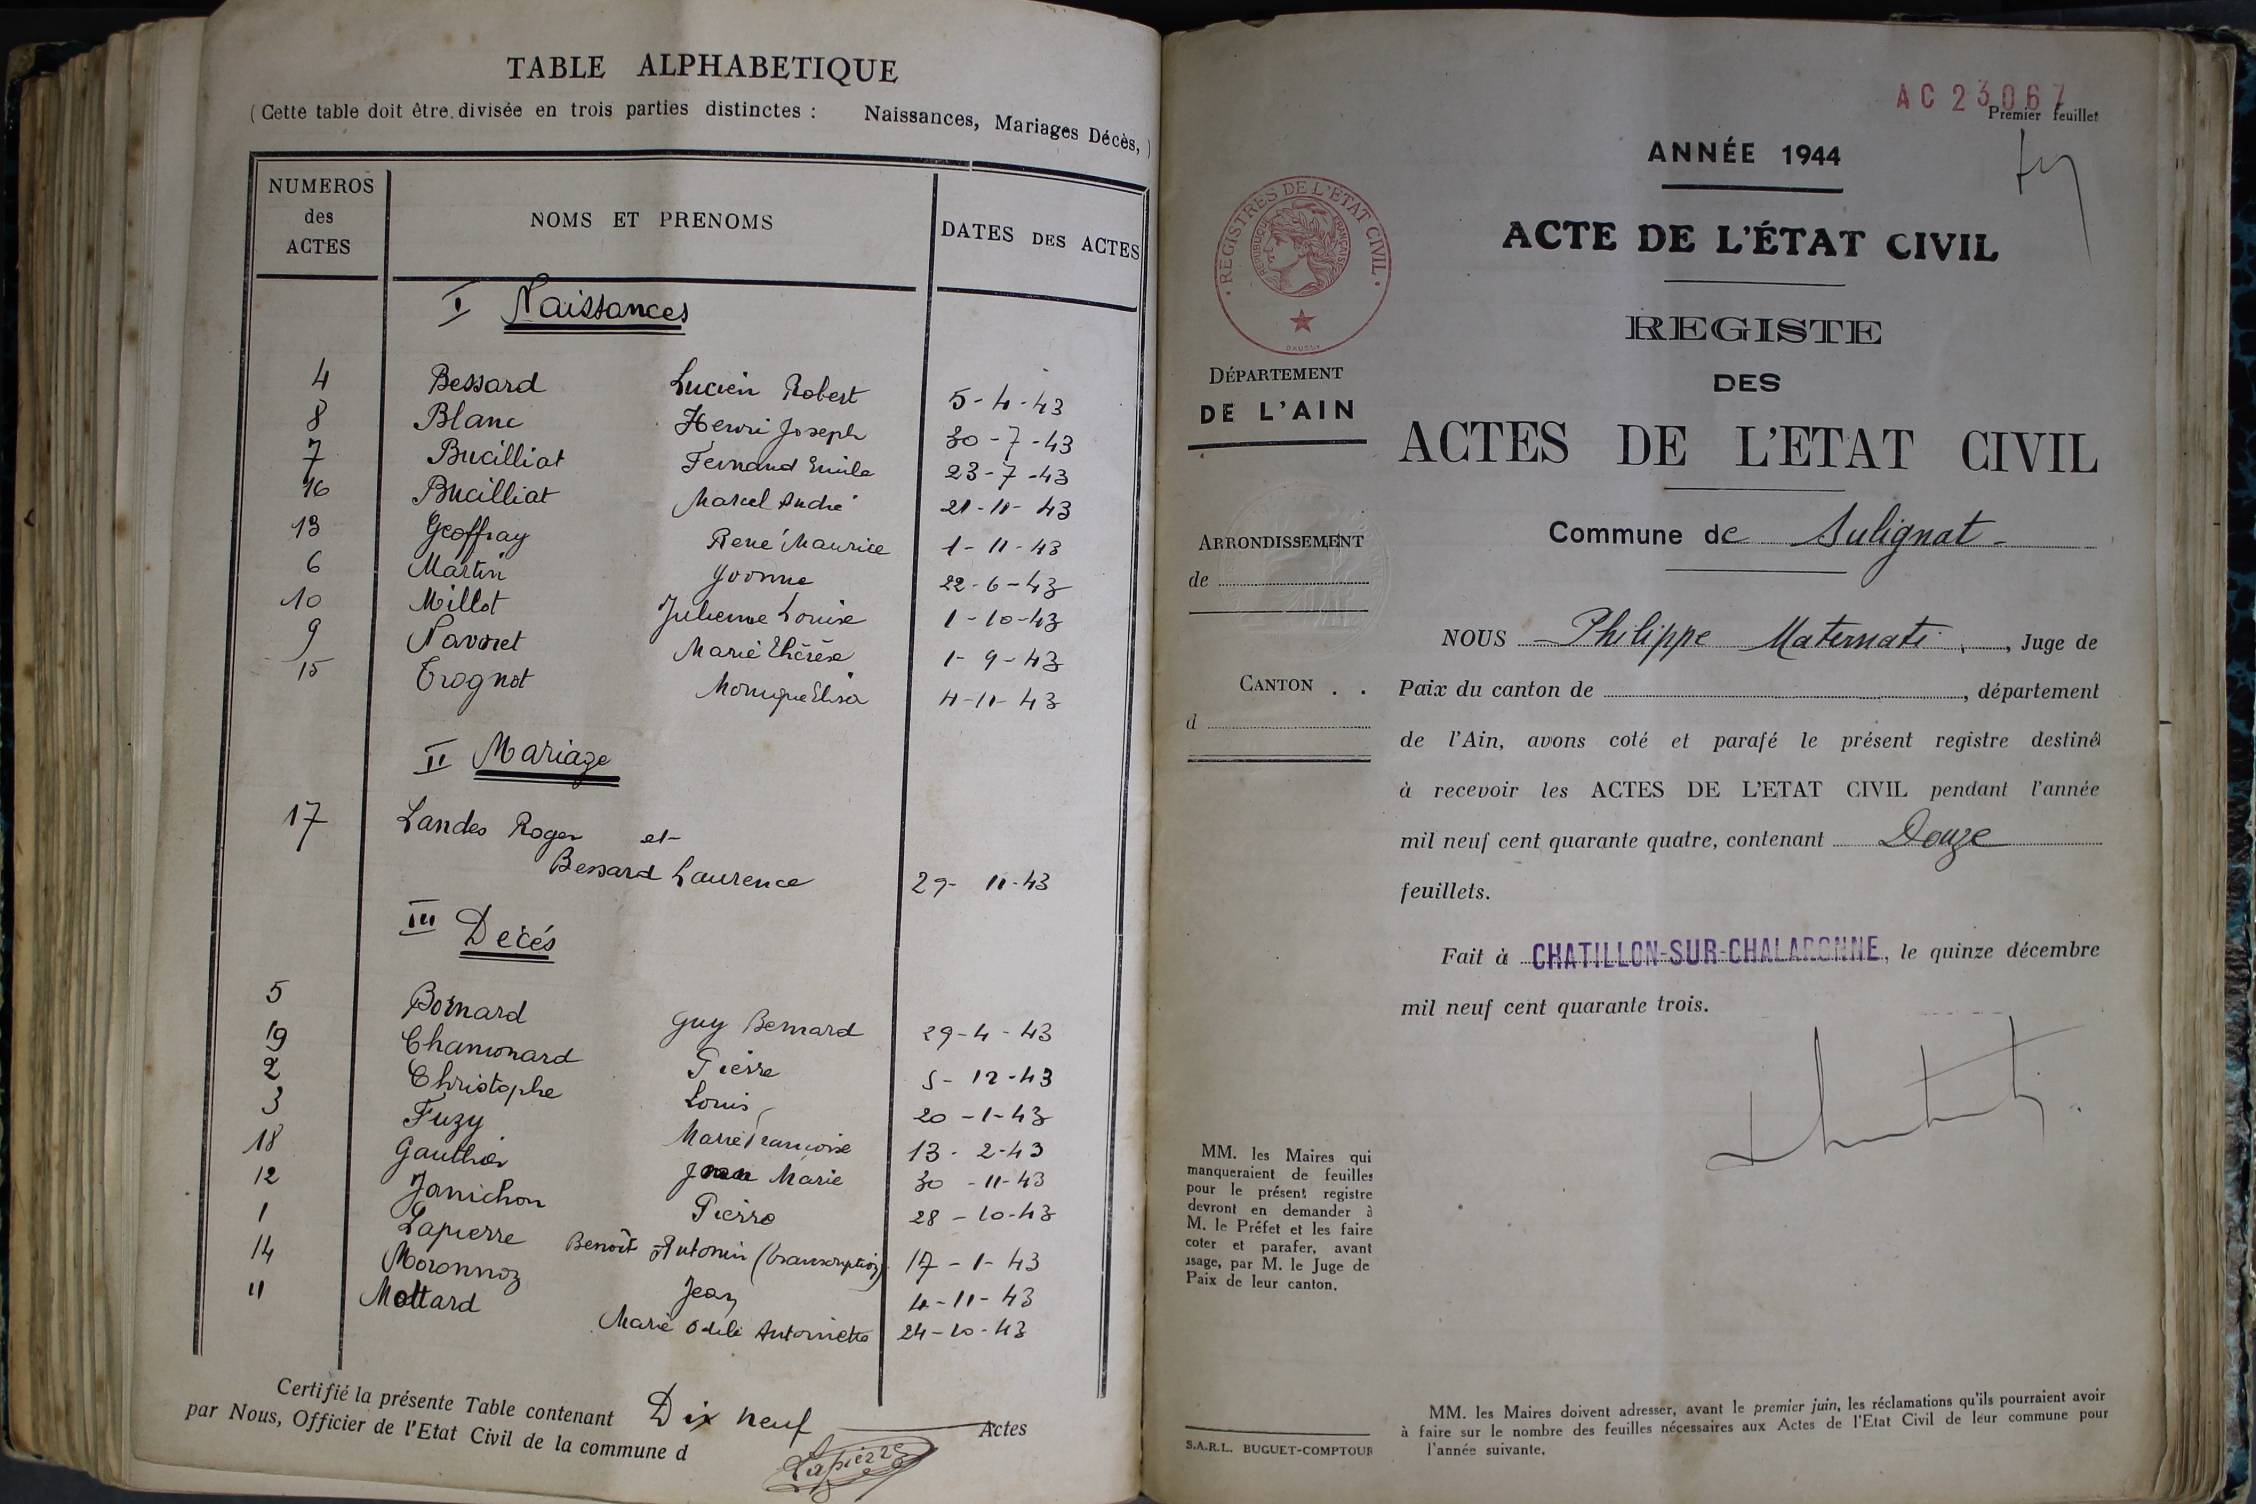 TABLE ALPHABETIQUE
(Cette table doit être divisée en trois parties distinctes : Naissances, Mariages Décès, )
NUMEROS des ACTES NOMS ET PRENOMS DATES DES ACTES
I Naissances
4 Bessard Lucien Robert 5-4-43
8 Blanc Henri Joseph 30-7-43
7 Bucilliat Fernand Emile 23-7-43
16 Bucilliat Marcel André 21-11-43
13 Geoffray René Maurice 1-11-43
6 Martin Yvonne 22-6-43
10 Millot Julienne Louise 1-10-43
9 Navoret Marie Thérèse 1-9-43
15 Trognot Monique Elisa 4-11-43
II Mariage
17 Landes Roger et
Bessard Laurence 29-11-43
III Decés
5 Bornard Guy Bernard 29-4-43
19 Chamonard Pierre 5-12-43
2 Christophe Louis 20-1-43
3 Fuzy Marie Françoise 13-2-43
18 Gauthier Jean Marie 30-11-43
12 Janichon Pierre 28-10-43
1 Lapierre Benoît Antonin (transcription) 17-1-43
14 Moronnoz Jean 4-11-43
11 Mottard Marie Odile Antoinette 24-10-43
Certifié la présente Table contenant Dix neuf Actes
par Nous, Officier de l'Etat Civil de la commune d
Lapierre
AC 23067
Premier feuillet
ANNÉE 1944
REGISTRES DE L'ETAT CIVIL
REPUBLIQUE FRANÇAISE
ACTE DE L'ÉTAT CIVIL
REGISTE
DES
ACTES DE L'ETAT CIVIL
DÉPARTEMENT
DE L'AIN
Commune de Sulignat
ARRONDISSEMENT
de
CANTON . .
d
NOUS Philippe Maternati, Juge de
Paix du canton de , département
de l'Ain, avons coté et parafé le présent registre destiné
à recevoir les ACTES DE L'ETAT CIVIL pendant l'année
mil neuf cent quarante quatre, contenant Douze
feuillets.
Fait à CHATILLON-SUR-CHALARONNE, le quinze décembre
mil neuf cent quarante trois.
MM. les Maires qui
manqueraient de feuilles
pour le présent registre
devront en demander à
M. le Préfet et les faire
coter et parafer, avant
usage, par M. le Juge de
Paix de leur canton.
S.A.R.L. BUGUET-COMPTOUR
MM. les Maires doivent adresser, avant le premier juin, les réclamations qu'ils pourraient avoir
à faire sur le nombre des feuilles nécessaires aux Actes de l'Etat Civil de leur commune pour
l'année suivante.